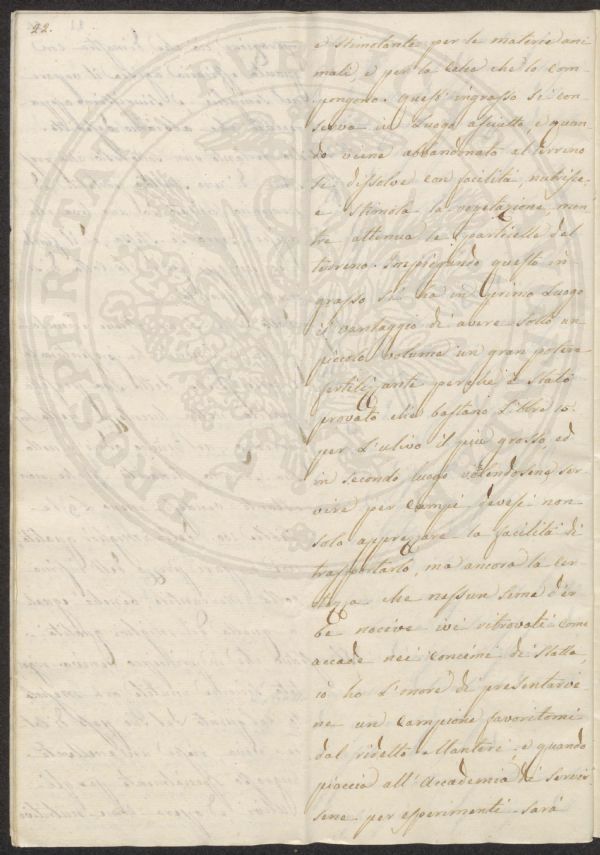 22.
e stimolante per le materie ani
mali, e per la Calce che lo com
pongono. Quest' ingrasso si con
serva in Luogo asciutto, e quan
do viene abbandonato al terreno
si dissolve con facilità, nutrisce,
e stimola la vegetazione, men
tre attenua le particelle del
terreno. Impiegando questo in
grasso si ha in primo Luogo
il vantaggio di avere sotto un
piccolo volume un gran potere
fertilizzante perchè è stato
provato che bastano Libbre 15.
per L'ulivo il più grosso, ed
in secondo luogo volendosene ser
vire per Campi devesi non
solo apprezzare la facilità di
trasportarlo, ma ancora la cer
tezza che nessun seme d'er
be nocive ivi ritrovasi come
accade nei Concimi di Stalla,
io ho L'onore di presentarvi
ne un Campione favoritomi
dal ridetto Manteri, e quando
piaccia all'Accademia di servir
sene per esperimenti sarà
PROSPERITATI PUBLICAE